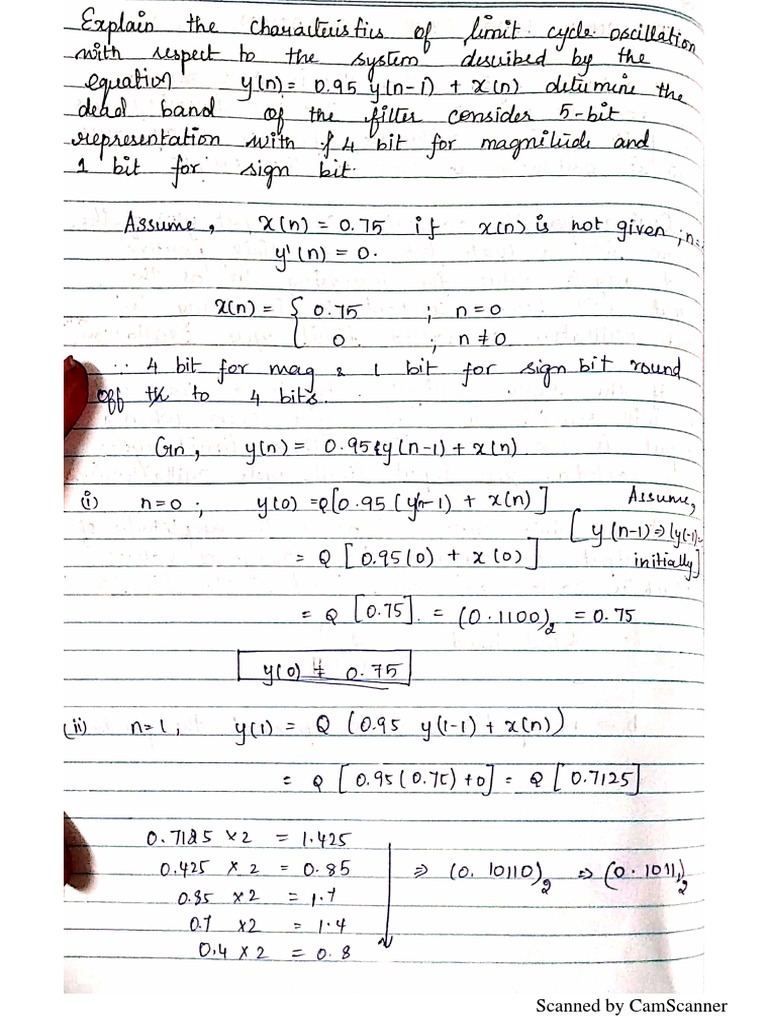 Explain the characteristics of limit cycle oscillation
with respect to the system desuibed by the
equation y(n) = 0.95 y(n-1) + x(n) determine the
dead band of the filter consider 5-bit
representation with 4 bit for magnitude and
1 bit for sign bit.
Assume, x(n) = 0.75 if x(n) is not given ; n=
y'(n) = 0.
x(n) = { 0.75 ; n = 0
0 ; n ≠ 0
∵ 4 bit for mag & 1 bit for sign bit round
off to 4 bits.
Gn, y(n) = 0.95 y(n-1) + x(n)
(i) n=0 ; y(0) = Q[0.95 (y(n-1) + x(n)] Assume,
[y(n-1) ⇒ (y(-1)=
= Q [0.95(0) + x(0)] initially]
= Q [0.75] = (0.1100)2 = 0.75
y(0) = 0.75
(ii) n=1, y(1) = Q (0.95 y(1-1) + x(n))
= Q [0.95(0.75) + 0] = Q [0.7125]
0.7125 x 2 = 1.425
0.425 x 2 = 0.85 ⇒ (0.10110)2 ⇒ (0.1011)2
0.85 x 2 = 1.7
0.7 x 2 = 1.4
0.4 x 2 = 0.8
Scanned by CamScanner